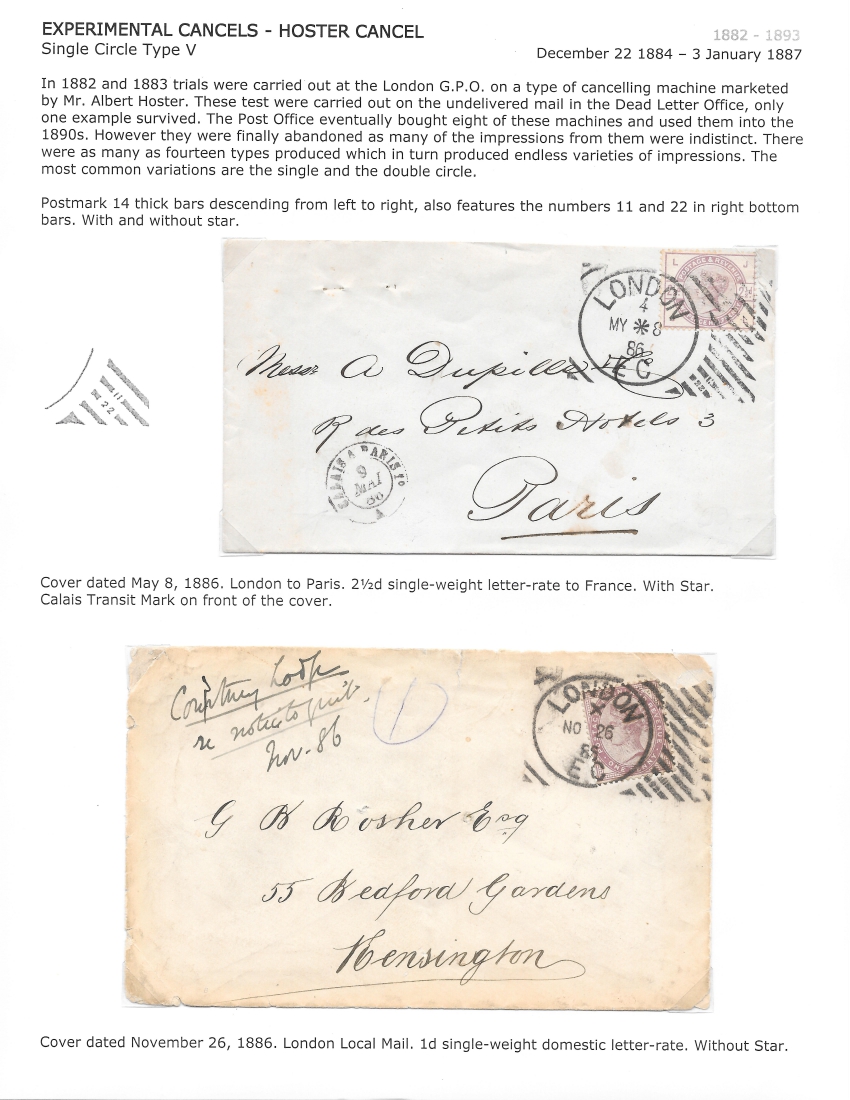 EXPERIMENTAL CANCELS - HOSTER CANCEL
1882 - 1893
Single Circle Type V
December 22 1884 – 3 January 1887
In 1882 and 1883 trials were carried out at the London G.P.O. on a type of cancelling machine marketed
by Mr. Albert Hoster. These test were carried out on the undelivered mail in the Dead Letter Office, only
one example survived. The Post Office eventually bought eight of these machines and used them into the
1890s. However they were finally abandoned as many of the impressions from them were indistinct. There
were as many as fourteen types produced which in turn produced endless varieties of impressions. The
most common variations are the single and the double circle.
Postmark 14 thick bars descending from left to right, also features the numbers 11 and 22 in right bottom
bars. With and without star.
L J
LONDON
4
MY * 8
86
E C
11
22
Messrs A Dupille
R des Petits Hotels 3
Paris
CALAIS A PARIS
9
MAI
86
Cover dated May 8, 1886. London to Paris. 2½d single-weight letter-rate to France. With Star.
Calais Transit Mark on front of the cover.
re notice to quit.
Nov. 86
1
LONDON
X
NO 26
86
E C
G B Rosher Esq
55 Bedford Gardens
Kensington
Cover dated November 26, 1886. London Local Mail. 1d single-weight domestic letter-rate. Without Star.